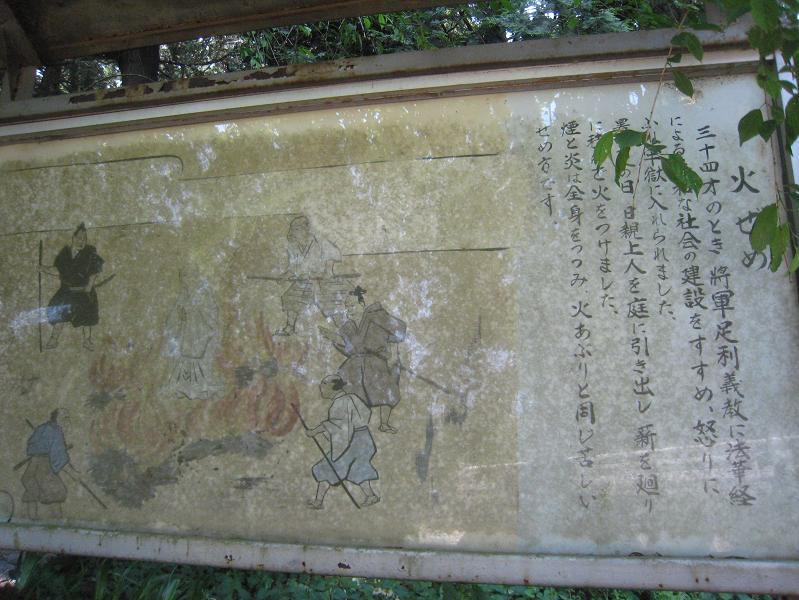 火せめ
三十四才のとき 将軍足利義教に法華経
による な社会の建設をすすめ、怒りに
獄に入れられました、
の日 日親上人を庭に引き出し 薪を廻り
に 火をつけました、
煙と炎は全身をつつみ 火あぶりと同じ苦しい
せめ方です